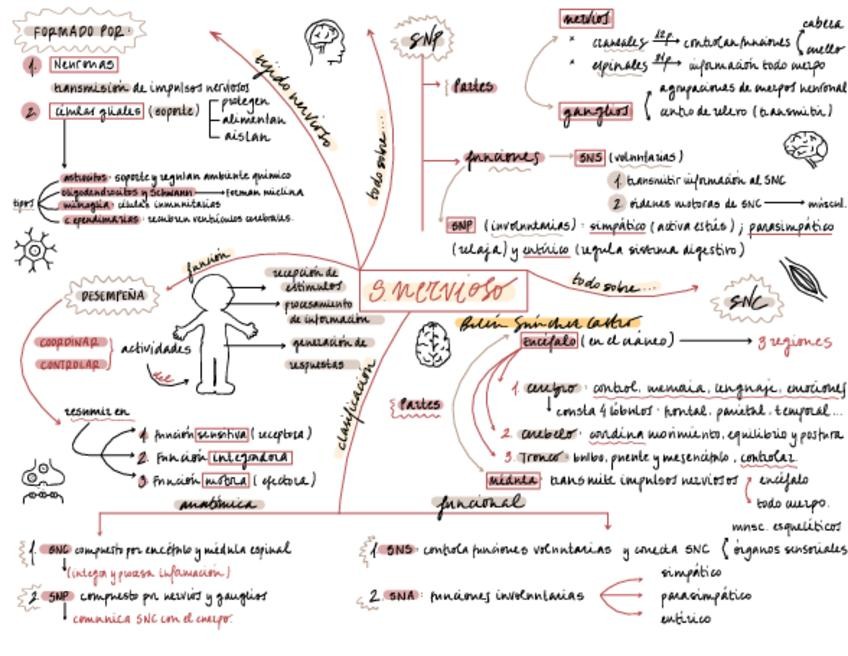 FORMADO POR:
1. Neuronas
transmisión de impulsos nerviosos
2. células gliales (soporte)
protegen
alimentan
aislan
tipos
astrocitos: soporte y regulan ambiente químico
oligodendrocitos y Schwann → forman mielina
microglia: células inmunitarias
c. ependimarias: recubren ventrículos cerebrales.
tejido nervioso
todo sobre...
SNP
Partes
nervios
* craneales 12p → controlan funciones
cabeza
cuello
* espinales 31p → información todo cuerpo
ganglios
agrupaciones de cuerpos neuronal
centro de relevo (transmitir)
funciones → SNS (voluntarias)
1 transmitir información al SNC
2 órdenes motoras de SNC → múscul.
SNP (involuntarias): simpático (activa estrés); parasimpático
(relaja) y entérico (regula sistema digestivo)
función
DESEMPEÑA
COORDINAR
CONTROLAR
actividades
del
recepción de
estímulos
procesamiento
de información
generación de
respuestas
resumir en
1. Función sensitiva (receptora)
2. Función integradora
3 Función motora (efectora)
S. nervioso
Belén Sánchez Castro
todo sobre...
SNC
Partes
encéfalo (en el cráneo) → 3 regiones
1. cerebro: control, memoria, lenguaje, emociones
consta 4 lóbulos: frontal, parietal, temporal...
2. cerebelo: coordina movimiento, equilibrio y postura
3. Tronco: bulbo, puente y mesencéfalo, controlar
médula: transmite impulsos nerviosos
encéfalo
todo cuerpo.
clasificación
anatómica
1. SNC compuesto por encéfalo y médula espinal
(integra y procesa información)
2. SNP compuesto por nervios y ganglios
comunica SNC con el cuerpo.
funcional
1 SNS: controla funciones voluntarias y conecta SNC
musc. esqueléticos
órganos sensoriales
2. SNA: funciones involuntarias
simpático
parasimpático
entérico